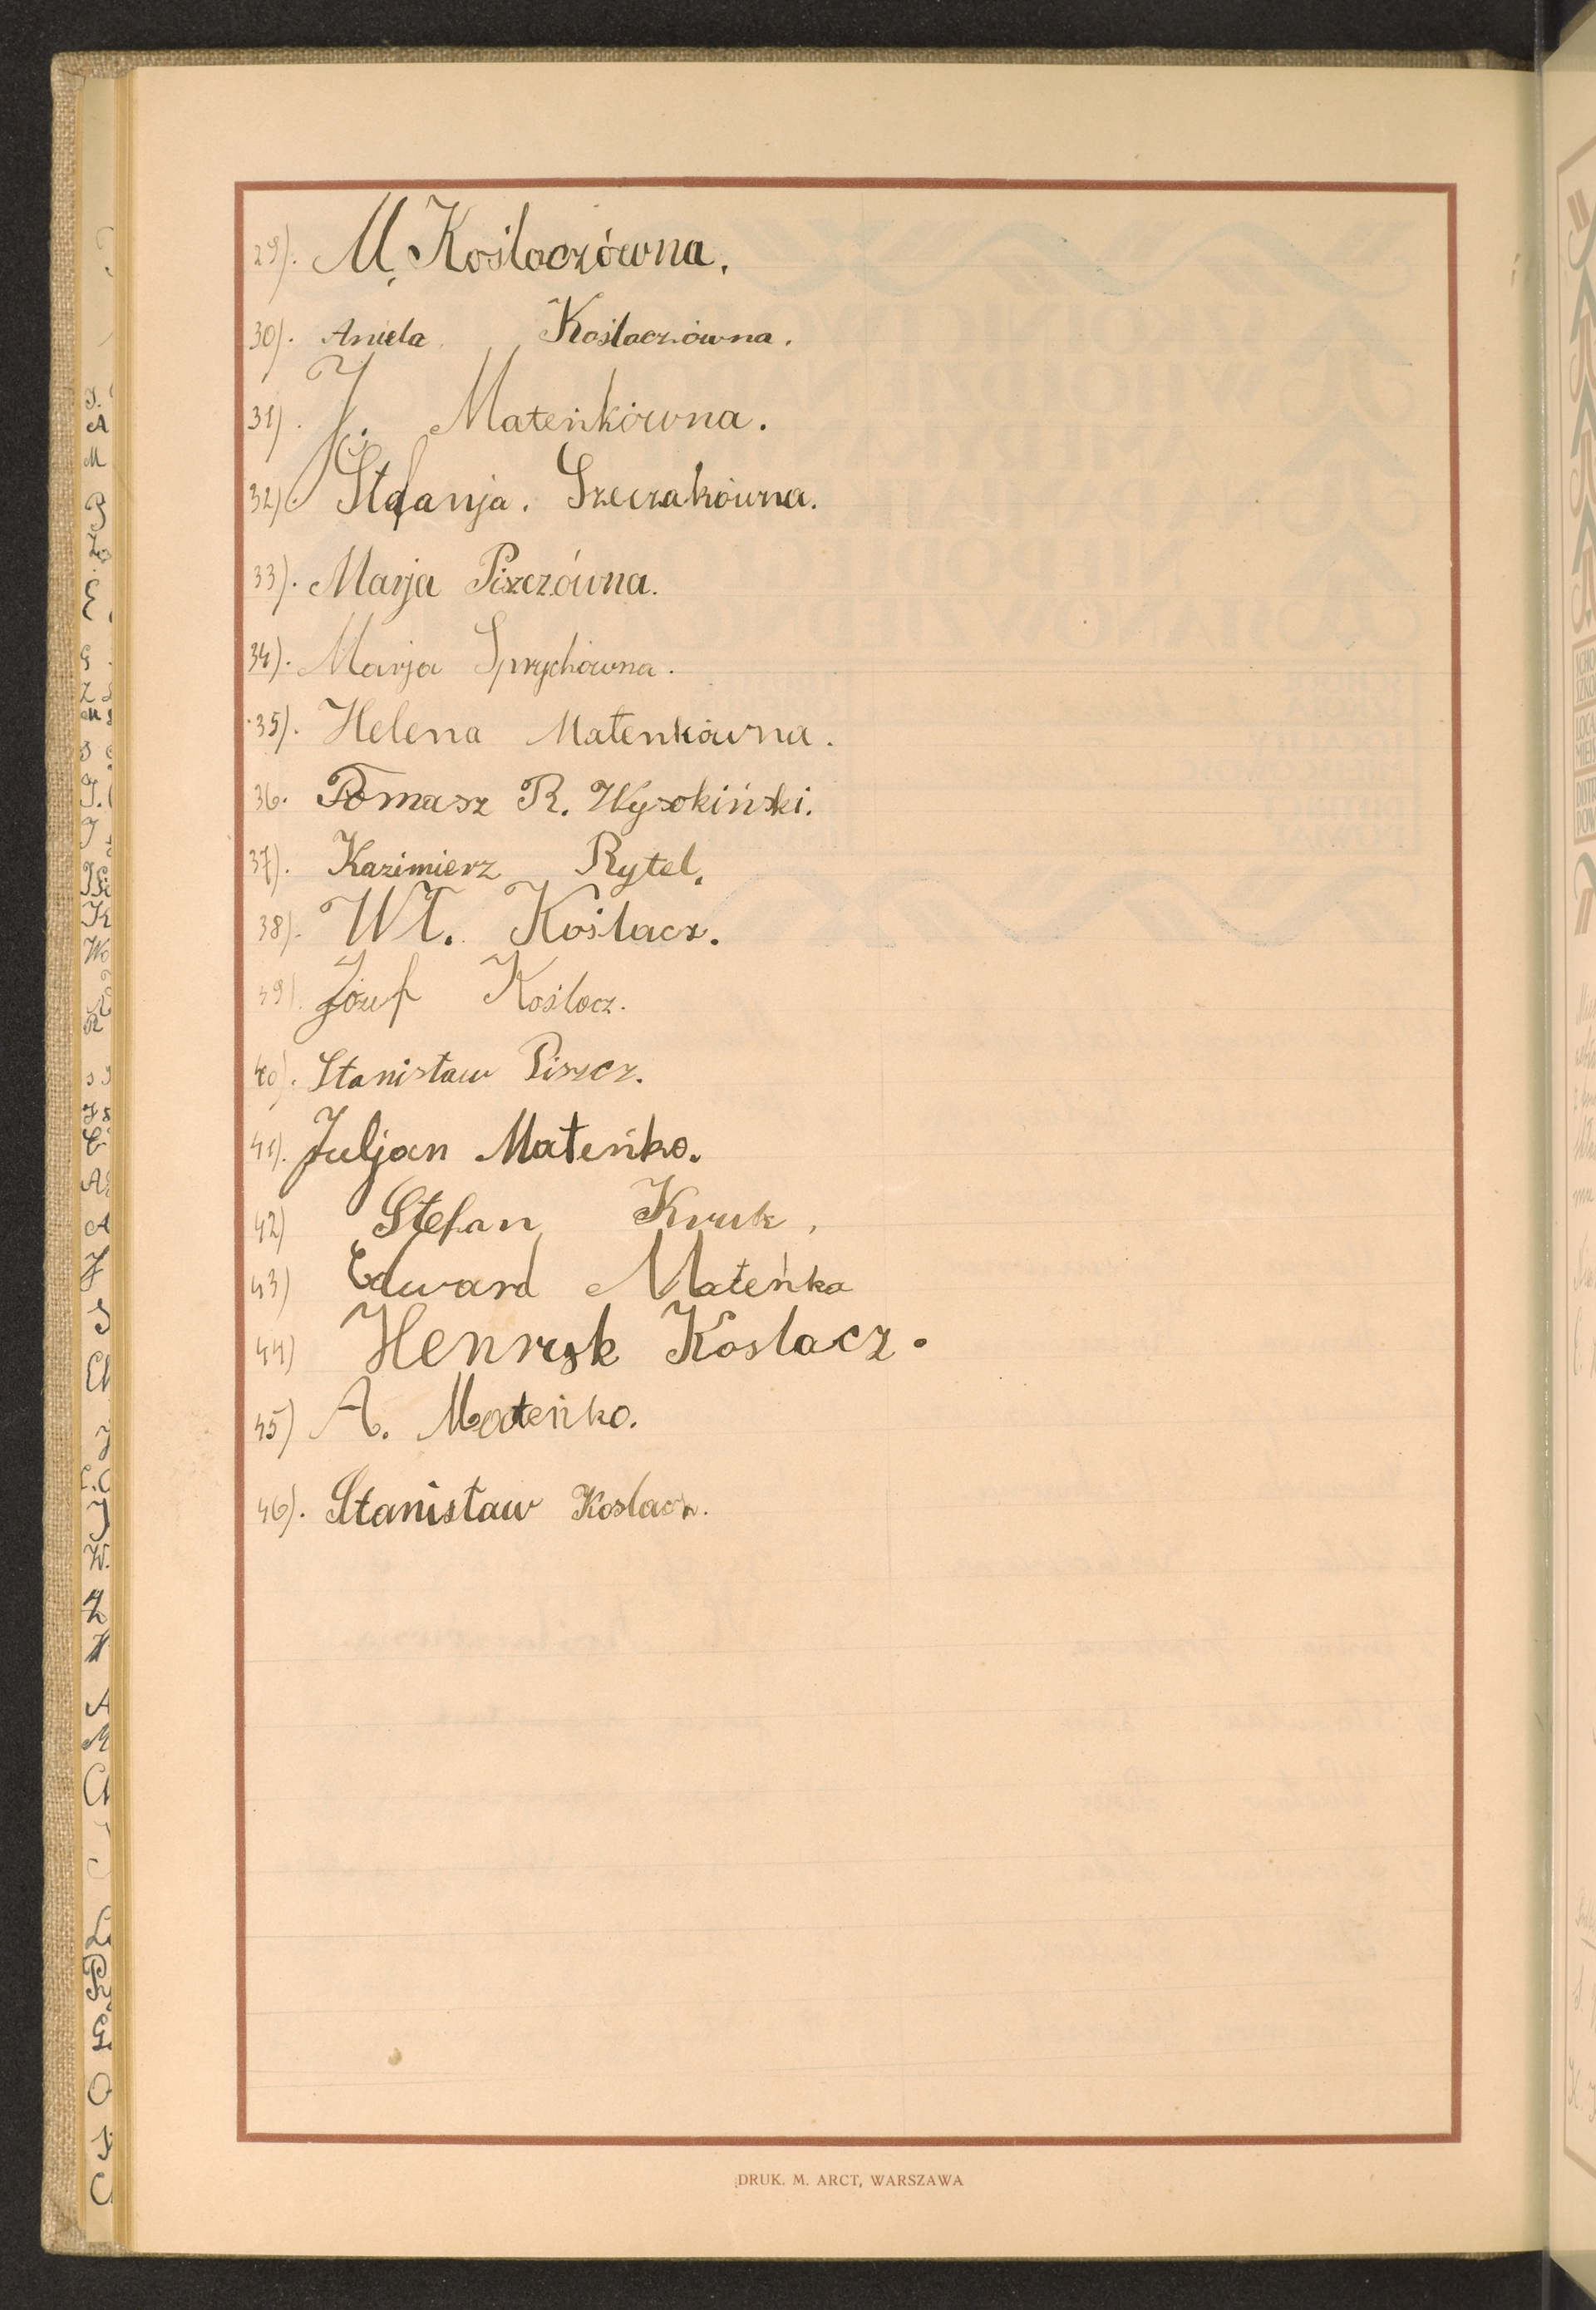 29). M. Koślaczówna.
30). Aniela Koślaczówna.
31). J. Mateńkówna.
32). Stefanja. Szeczakówna.
33). Marja Piszczówna.
34). Marja Sprychówna.
35). Helena Matenkówna.
36. Tomasz R. Wysokiński.
37). Kazimierz Rytel.
38). Wł. Koślacz.
39). Józef Koślacz.
40). Stanisław Piszcz.
41). Juljan Mateńko.
42) Stefan Kruk.
43) Edward Mateńka
44) Henryk Koslacz.
45) A. Mateńko.
46). Stanisław Koslacz.
DRUK. M. ARCT, WARSZAWA